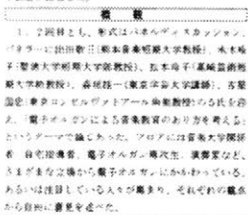 概 観
1、2回目とも、形式はパネルディスカッション。
パネラーに出田敬三(熊本音楽短期大学教授)、水木峰
子(聖徳大学短期大学部教授)、松本玲子(
期大学助教授)、森 (東京学芸大学講師)、
(東京コンセルヴァトアール尚美教授)の5氏を迎
え、「電子オルガンによる音楽教育のあり方を考える」
というテーマで論じあった。フロアには音楽大学関係
者、自宅指導者、電子オルガン専攻生、演奏家など、
さまざまな立場から電子オルガンにかかわっている、
あるいは注目している人々が集まり、それぞれの観点
から自由に意見を述べた。